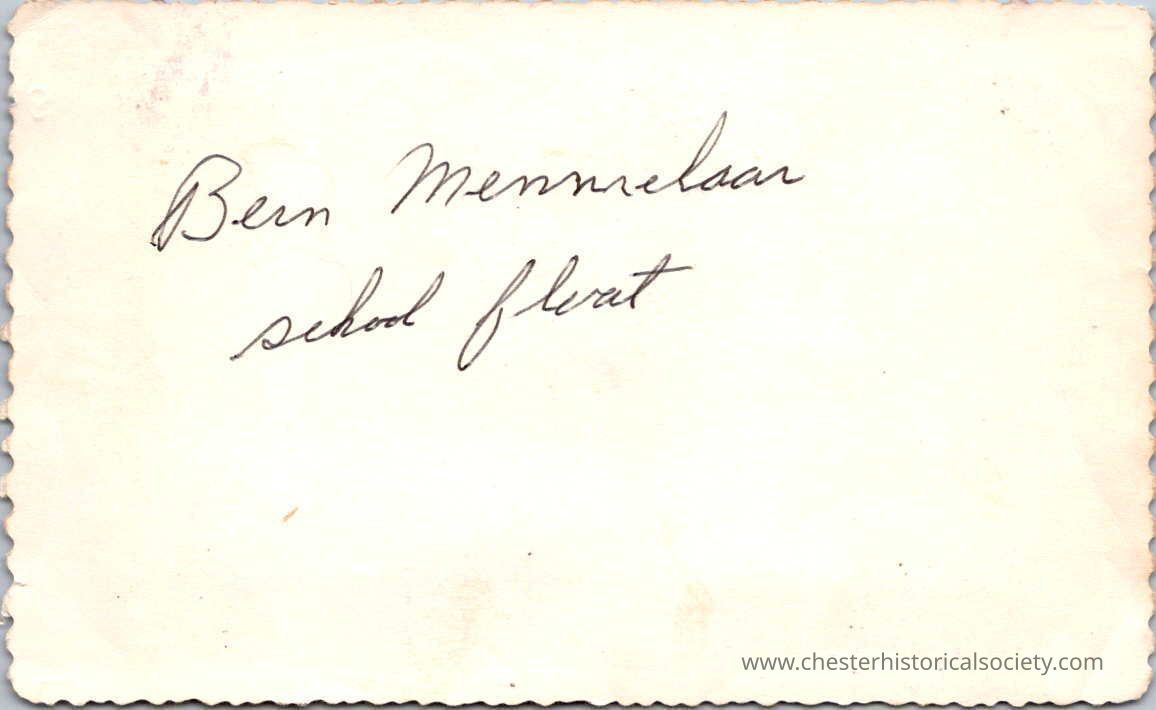 Bern Mennrelaar
school float
www.chesterhistoricalsociety.com